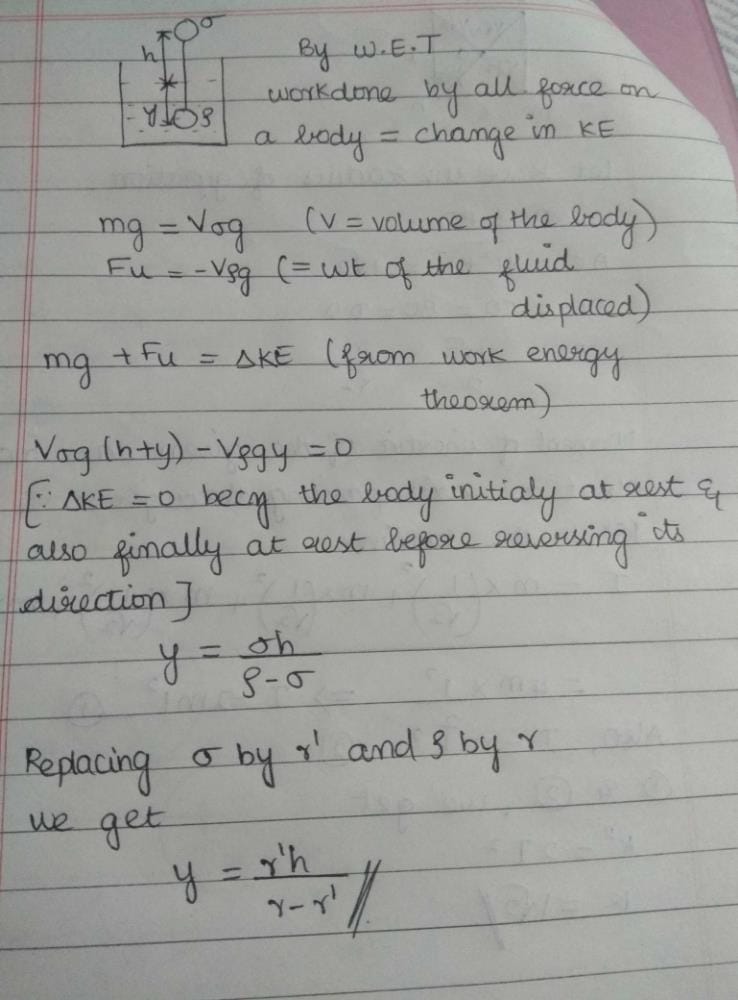 σ
h
y ρ
By W.E.T
workdone by all force on
a body = change in KE
mg = Vσg (V = volume of the body)
Fu = -Vρg (= wt of the fluid
displaced)
mg + Fu = ΔKE (from work energy
theorem)
Vσg(h+y) - Vρgy = 0
[∵ ΔKE = 0 becz the body initialy at rest &
also finally at rest before reversing its
direction]
y = σh / ρ-σ
Replacing σ by r' and ρ by r
we get
y = r'h / r-r' //